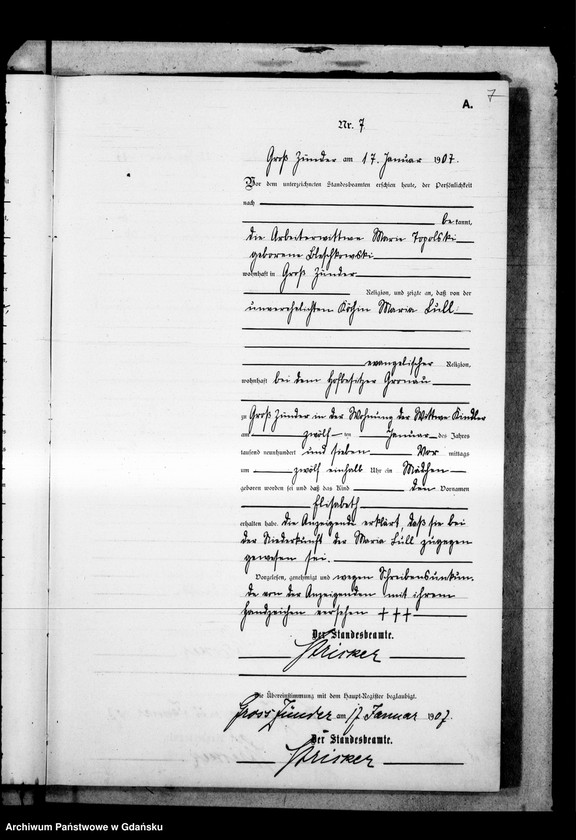 7
A.
Nr. 7
Groß Zünder am 17. Januar 1907.
Vor dem unterzeichneten Standesbeamten erschien heute, der Persönlichkeit
nach
be kannt,
die Arbeiterwittwe Marie Topolski
geborene Bleschkowski
wohnhaft in Groß Zünder
Religion, und zeigte an, daß von der
unverehelichten Köchin Maria Lull
evangelischer Religion,
wohnhaft bei dem Hofbesitzer Gronau
zu Groß Zünder in der Wohnung der Wittwe Kindler
am zwölf ten Januar des Jahres
tausend neunhundert und sieben Vor mittags
um zwölf einhalb Uhr ein Mädchen
geboren worden sei und daß das Kind den Vornamen
Elisabeth
erhalten habe. die Anzeigende erklärt, daß sie bei
der Niederkunft der Maria Lull zugegen
gewesen sei.
Vorgelesen, genehmigt und wegen Schreibensunkun-
de von der Anzeigenden mit ihrem
Handzeichen versehen +++
Der Standesbeamte.
Stricker
Die Übereinstimmung mit dem Haupt-Register beglaubigt.
Gross Zünder am 17 Januar 1907.
Der Standesbeamte.
Stricker
Archiwum Państwowe w Gdańsku